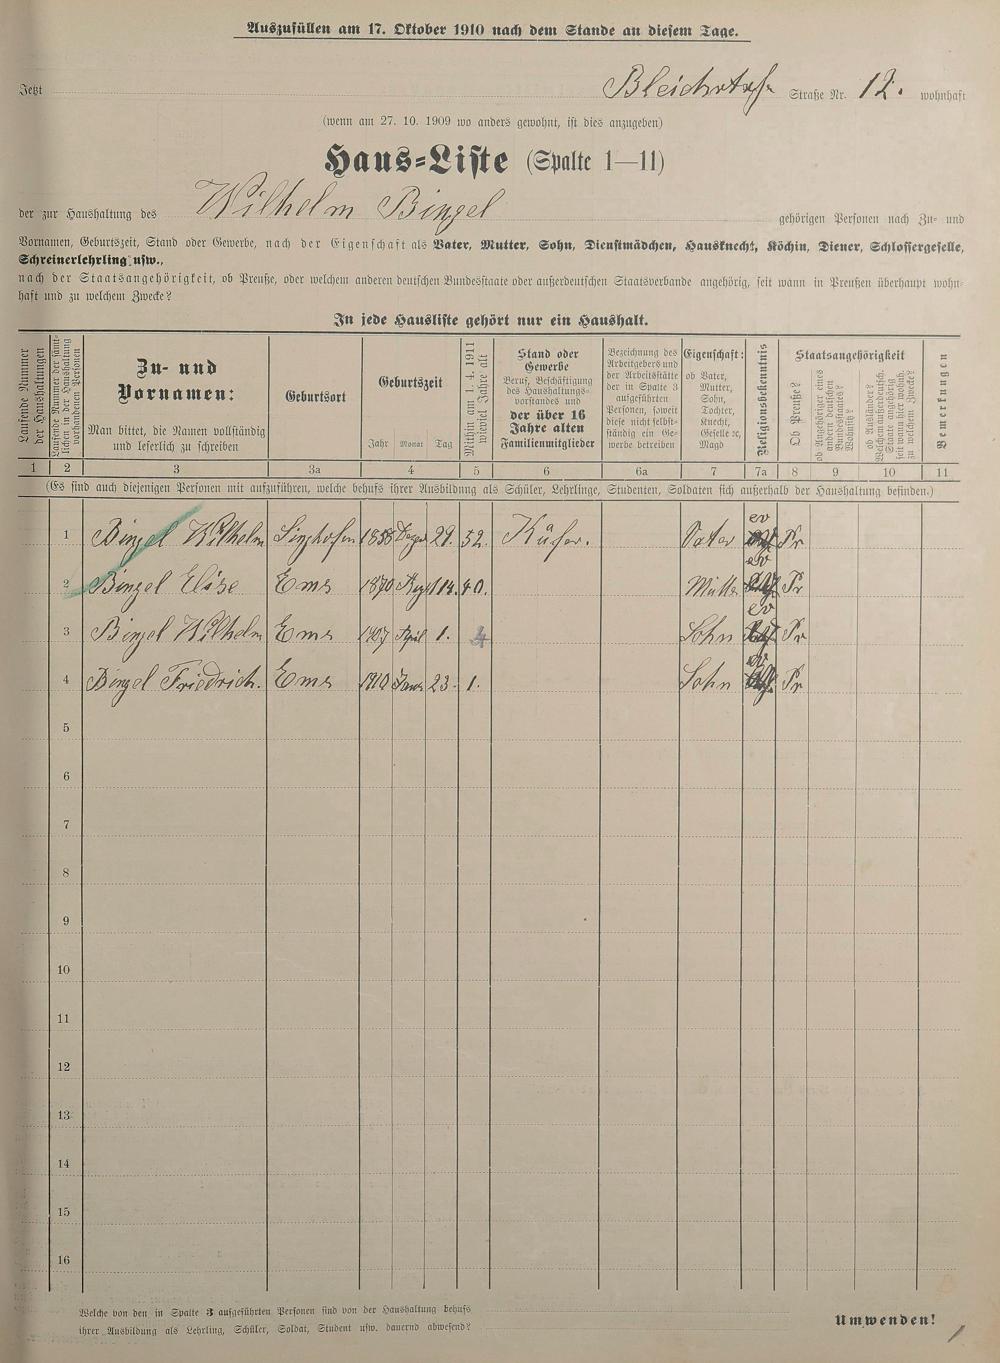 Auszufüllen am 17. Oktober 1910 nach dem Stande an diesem Tage.
Jetzt Bleichstraße Straße Nr. 12. wohnhaft
(wenn am 27. 10. 1909 wo anders gewohnt, ist dies anzugeben)
Haus=Liste (Spalte 1—11)
der zur Haushaltung des Wilhelm Bingel gehörigen Personen nach Zu- und
Vornamen, Geburtszeit, Stand oder Gewerbe, nach der Eigenschaft als Vater, Mutter, Sohn, Dienstmädchen, Hausknecht, Köchin, Diener, Schlossergeselle,
Schreinerlehrling usw.,
nach der Staatsangehörigkeit, ob Preuße, oder welchem anderen deutschen Bundesstaate oder außerdeutschen Staatsverbande angehörig, seit wann in Preußen überhaupt wohn-
haft und zu welchem Zwecke?
In jede Hausliste gehört nur ein Haushalt.
Laufende Nummer
der Haushaltungen
Laufende Nummer der sämt-
lichen in der Haushaltung
vorhandenen Personen
Zu- und
Vornamen:
Man bittet, die Namen vollständig
und leserlich zu schreiben
Geburtsort
Geburtszeit
Jahr Monat Tag
Mithin am 1. 4. 1911
wieviel Jahre alt
Stand oder
Gewerbe
Beruf, Beschäftigung
des Haushaltungs-
vorstandes und
der über 16
Jahre alten
Familienmitglieder
Bezeichnung des
Arbeitgebers und
der Arbeitsstätte
der in Spalte 3
aufgeführten
Personen, soweit
diese nicht selbst-
ständig ein Ge-
werbe betreiben
Eigenschaft:
ob Vater,
Mutter,
Sohn,
Tochter,
Knecht,
Geselle ec,
Magd
Religionsbekenntnis
Staatsangehörigkeit
Ob Preuße?
ob Angehöriger eines
andern deutschen
Bundesstaates?
Wohnsitz?
ob Ausländer?
Welchem außerdeutsch.
Staate angehörig
seit wann hier wohnh.
zu welchem Zwecke?
Bemerkungen
1 2 3 3a 4 5 6 6a 7 7a 8 9 10 11
(Es sind auch diejenigen Personen mit aufzuführen, welche behufs ihrer Ausbildung als Schüler, Lehrlinge, Studenten, Soldaten sich außerhalb der Haushaltung befinden.)
1 Bingel Wilhelm Singhofen 1858 29. 52. Küfer. Vater ev Pr
2 Bingel Elise Ems 1870 14. 40. Mutter ev Pr
3 Bingel Wilhelm Ems 1907 April 1. 4 Sohn ev Pr
4 Bingel Friedrich. Ems 1910 Janu 23. 1. Sohn ev Pr
5
6
7
8
9
10
11
12
13
14
15
16
Welche von den in Spalte 3 aufgeführten Personen sind von der Haushaltung behufs
ihrer Ausbildung als Lehrling, Schüler, Soldat, Student usw. dauernd abwesend?
Umwenden!